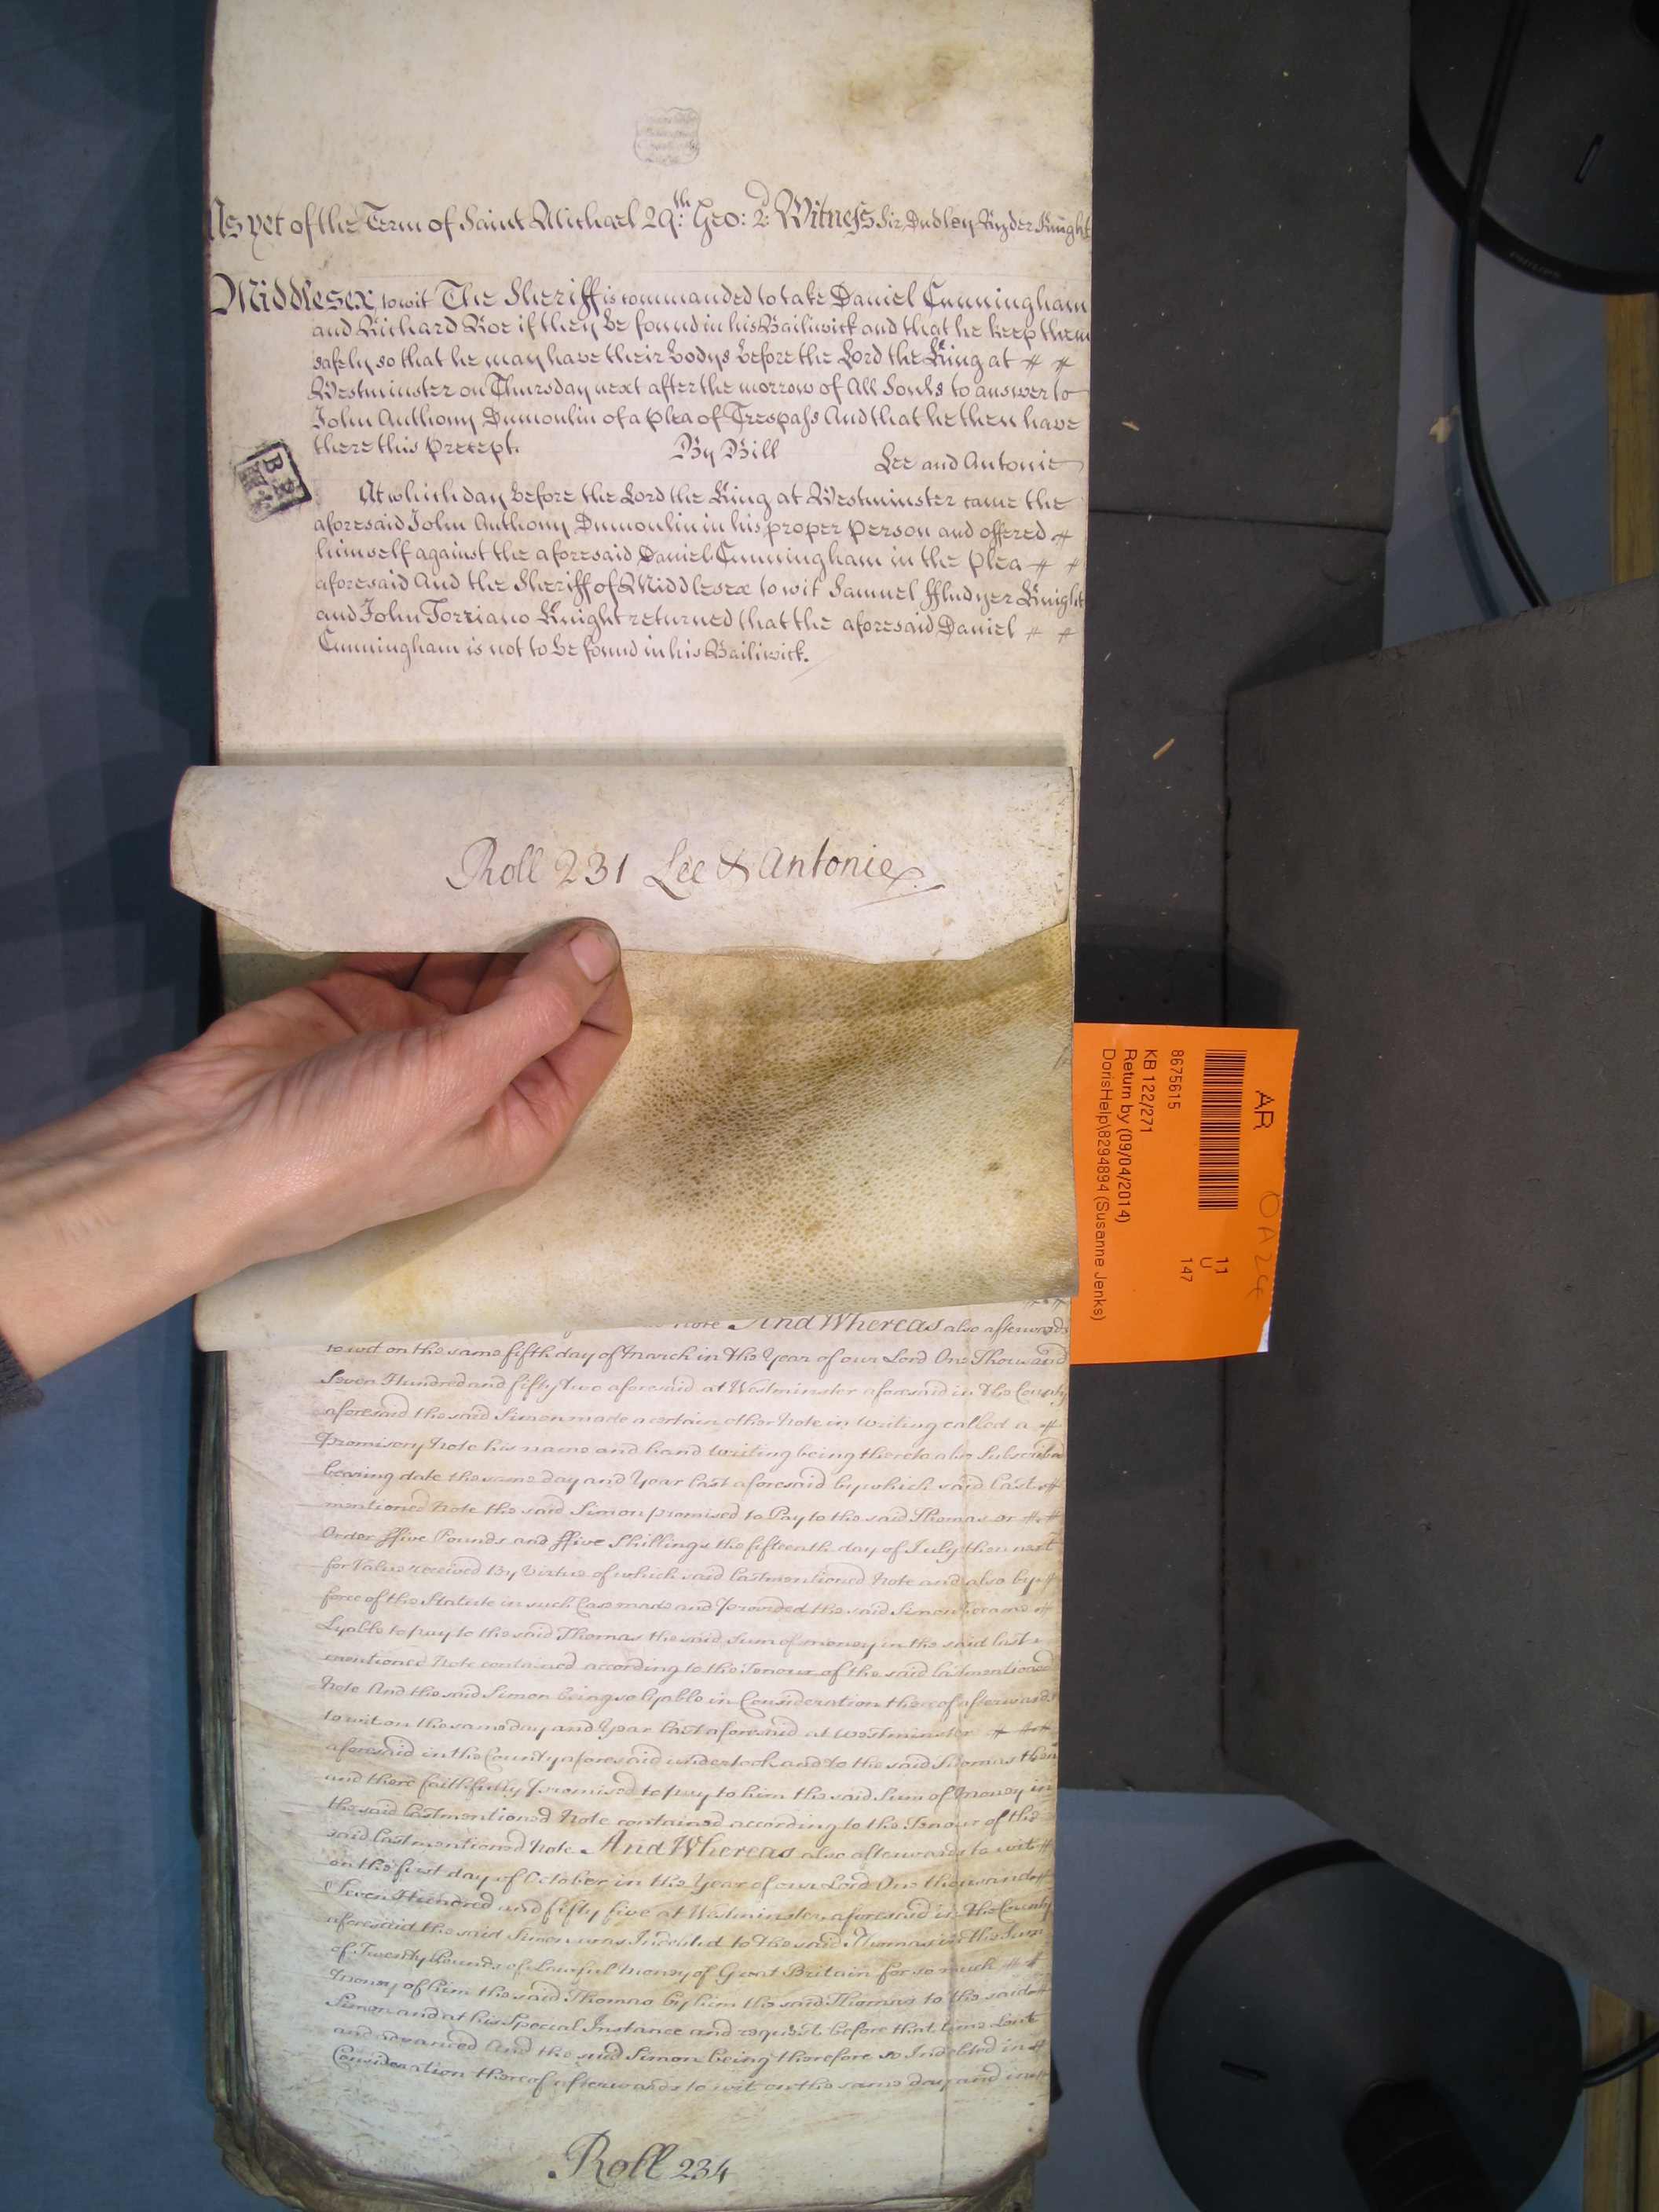 As yet of the Term of Saint Michael 29th. Geo: 2d. Witness Sir Dudley Ryder Knight
Middlesex to wit The Sheriff is commanded to take Daniel Cunningham
and Richard Roe if they be found in his Bailiwick and that he keep them
safely so that he may have their bodys before the Lord the King at
Westminster on Thursday next after the morrow of All Souls to answer to
John Anthony Dumoulin of a plea of Trespass And that he then have
there this Precept. By Bill Lee and Antonie
At which day before the Lord the King at Westminster came the
aforesaid John Anthony Dumoulin in his proper Person and offered
himself against the aforesaid Daniel Cunningham in the plea
aforesaid And the Sheriff of Middlesex to wit Samuel Ffludyer Knight
and John Torriano Knight returned that the aforesaid Daniel
Cunningham is not to be found in his Bailiwick.
Roll 231 Lee & Antonie
AR
8675615
KB 122/271
Return by (09/04/2014)
DorisHelp\8294894 (Susanne Jenks)
11
U
147
Note And Whereas also afterwards
to wit on the same fifth day of March in the Year of our Lord One Thousand
Seven Hundred and fifty two aforesaid at Westminster aforesaid in the County
aforesaid the said Simon made a certain other Note in Writing called a
Promisory Note his name and hand writing being thereto also Subscribed
bearing date the same day and Year last aforesaid by which said last
mentioned Note the said Simon promised to Pay to the said Thomas or
Order ffive Pounds and ffive Shillings the fifteenth day of July then next
for Value received By Virtue of which said lastmentioned Note and also by
force of the Statute in such Case made and Provided the said Simon became
Lyable to pay to the said Thomas the said Sum of money in the said last
mentioned Note contained according to the Tenour of the said lastmentioned
Note And the said Simon being so lyable in Consideration thereof afterwards
to wit on the same day and Year last aforesaid at Westminster
aforesaid in the County aforesaid undertook and to the said Thomas then
and there faithfully Promised to pay to him the said Sum of Money in
the said lastmentioned Note contained according to the Tenour of the
said lastmentioned Note And Whereas also afterwards to wit
on the first day of October in the Year of our Lord One thousand
Seven Hundred and fifty five at Westminster aforesaid in the County
aforesaid the said Simon was Indebted to the said Thomas in the Sum
of Twenty Pounds of Lawful Money of Great Britain for so much
Money of him the said Thomas by him the said Thomas to the said
Simon and at his Special Instance and request before that time Lent
and advanced And the said Simon being therefore so Indebted in
Consideration thereof afterwards to wit on the same day and in
Roll 234